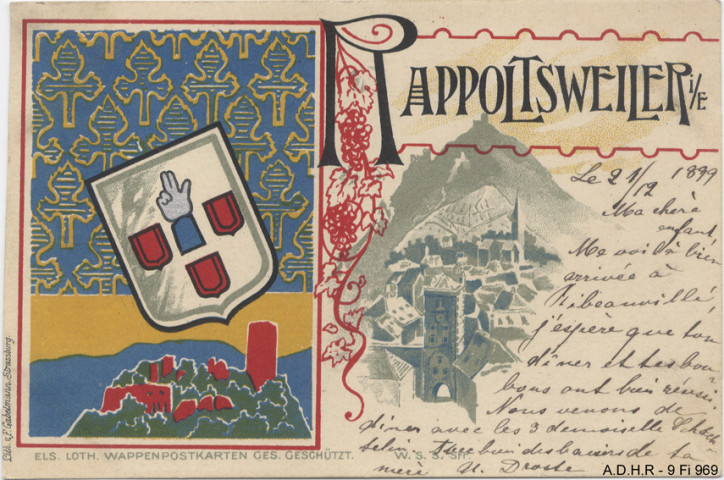 RAPPOLTSWEILER i/E
Le 21/12 1899
Ma chère
enfant
Me voilà bien
arrivée à
Ribeauvillé,
j'espère que ton
dîner et tes bon
bons ont bien réussi
Nous venons de
dîner avec les 3 demoiselle
bien des baisers de ta
mère H. Droste
Lith. v. P. Gabelmann, Strassburg.
ELS. LOTH. WAPPENPOSTKARTEN GES. GESCHÜTZT.
W. S. S. Str.
A.D.H.R - 9 Fi 969